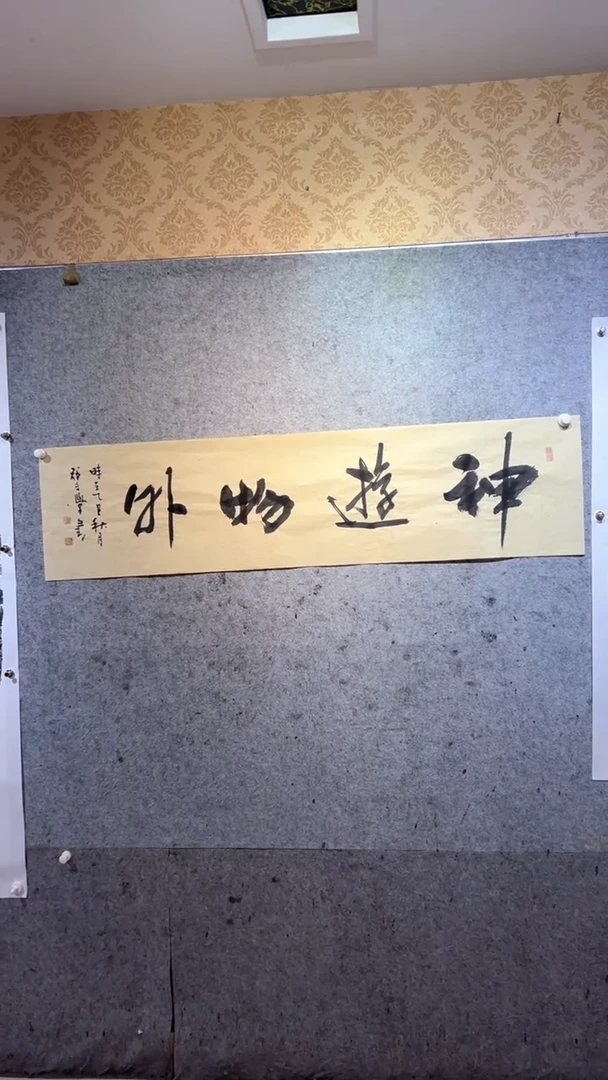 神遊物外
時在乙巳秋月